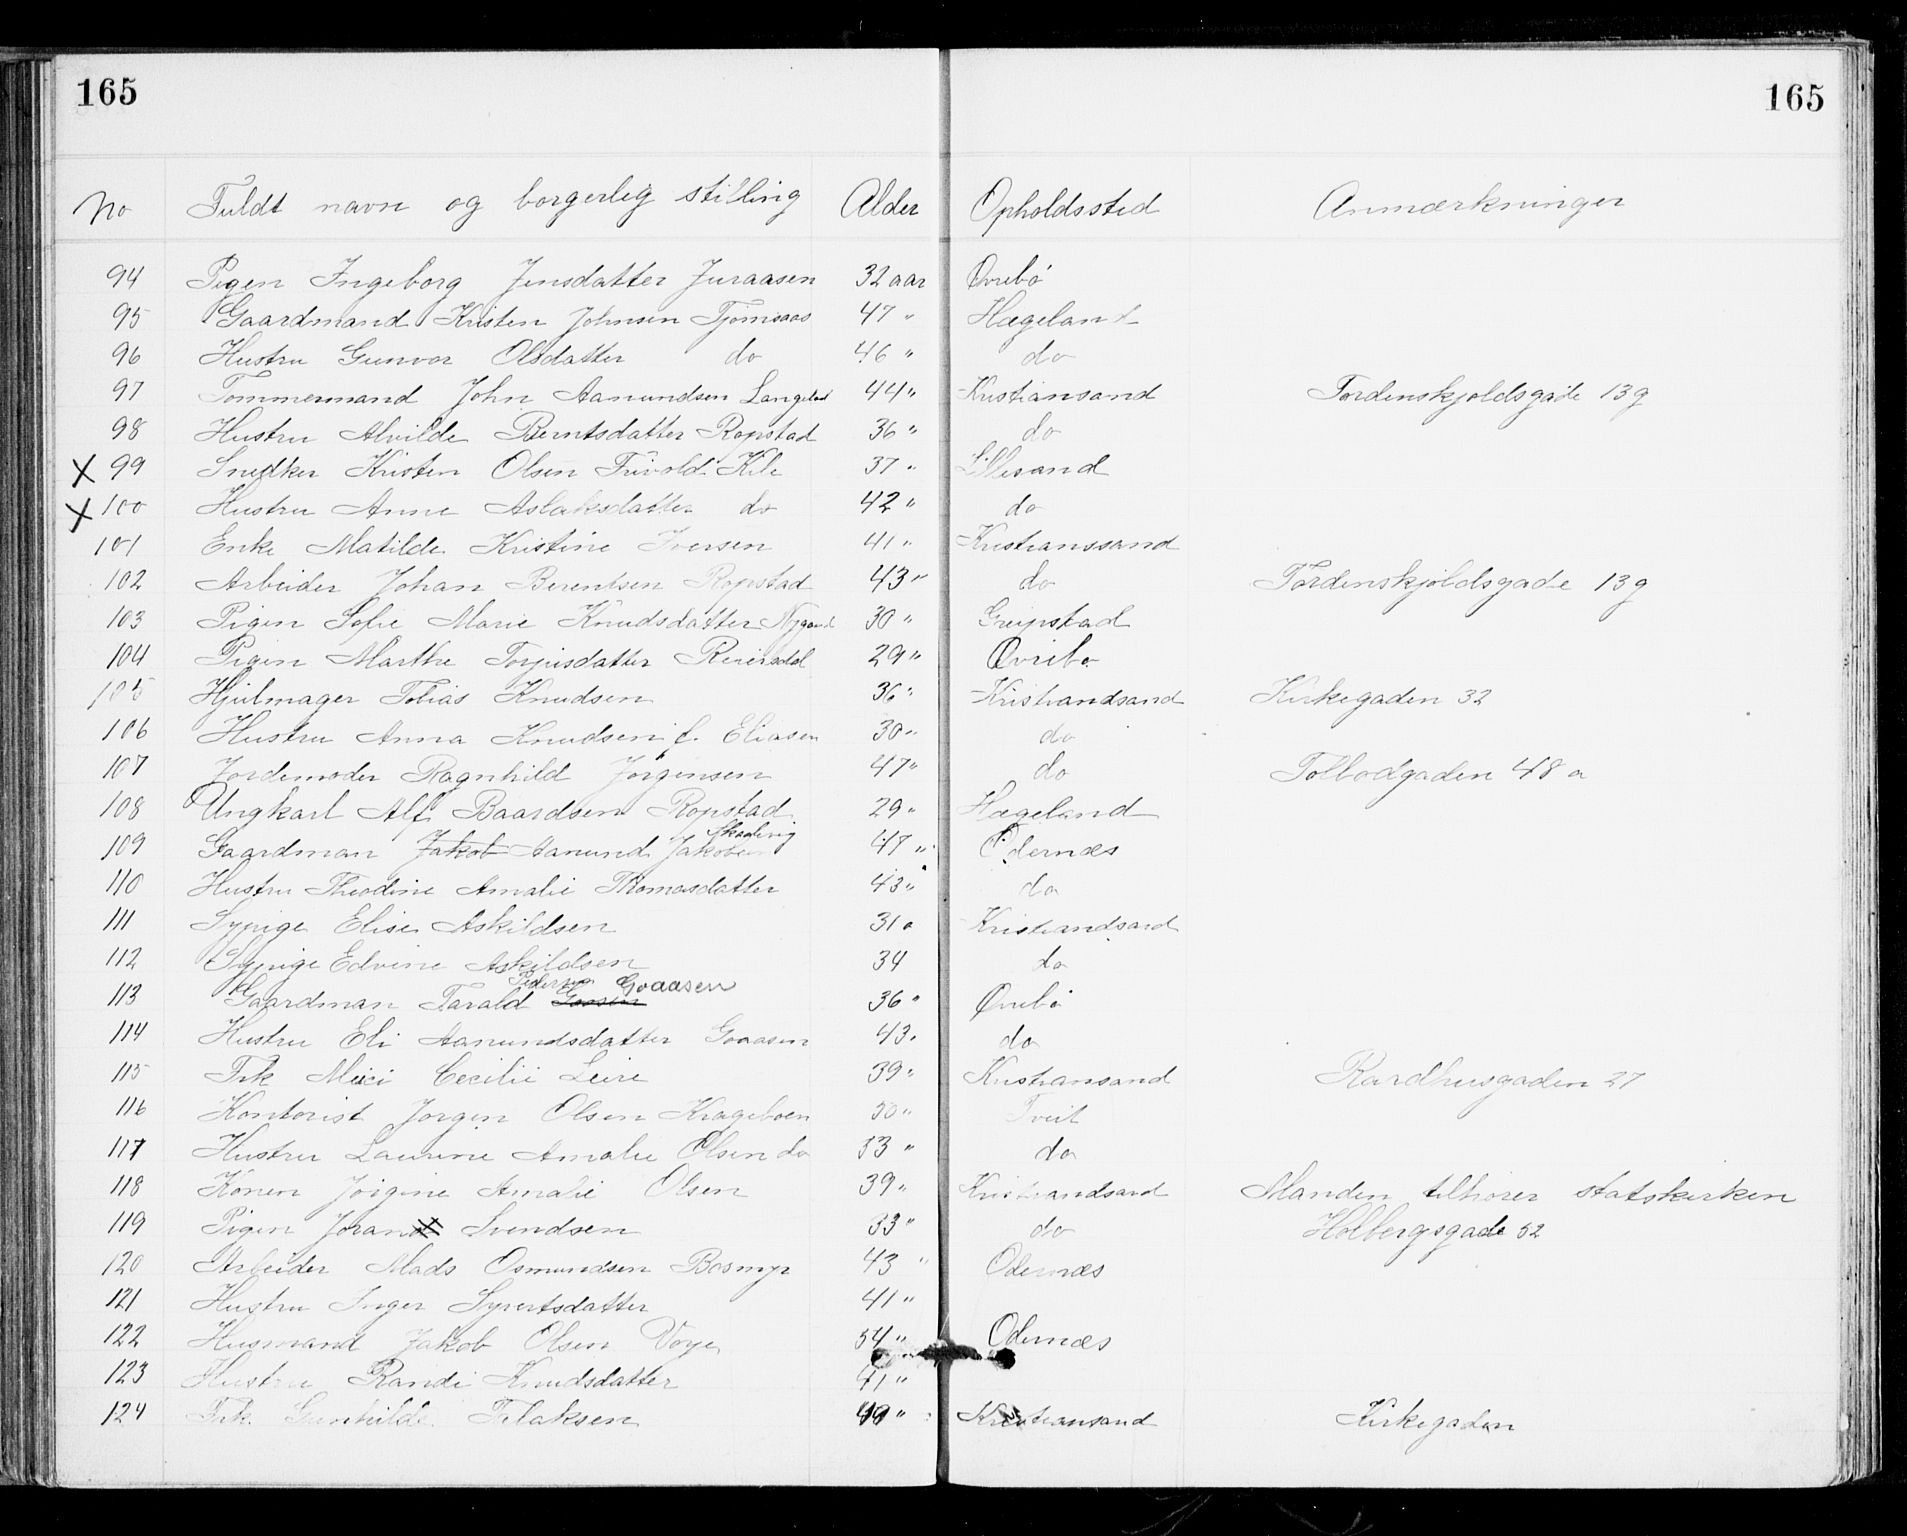 165 165
No Fuldt navn og borgerlig stilling Alder Opholdssted Anmærkninger
94 Pigen Ingeborg Jensdatter Juraasen 32 aar Øvrebö
95 Gaardmand Kristen Johnsen Tjomsaas 47 " Hægeland
96 Hustru Gunvor Olsdatter do 46 " do
97 Tommermand John Aanundsen Langeland 44 " Kristiansand Tordenskjoldsgade 13 g
98 Hustru Alvilde Berntsdatter Ropstad 36 " do
X 99 Snedker Kristen Olsen Frivold Kile 37 " Lillesand
X 100 Hustru Anne Aslaksdatter do 42 " do
101 Enke Matilde Kristine Iversen 41 " Kristianssand
102 Arbeider Johan Berentsen Ropstad 43 " do Tordenskjoldsgade 13 g
103 Pigen Sofie Marie Knudsdatter Nygaard 30 " Greipstad
104 Pigen Marthe Torjusdatter Reiersdal 29 " Øvrebø
105 Hjulmager Tobias Knudsen 36 " Kristiandsand Kirkegaden 32
106 Hustru Anna Knudsen f. Eliasen 30 " do
107 Jordemoder Ragnhild Jørgensen 47 " do Tolbodgaden 48 a
108 Ungkarl Alf Baardsen Ropstad 29 " Hægeland
109 Gaardman Jakob Aanund Jakobsen 47 " Odernæs
110 Hustru Theodine Amalie Thomasdatter 43 " do
111 Sypige Elise Askildsen 31 " Kristiandsand
112 Sypige Edvine Askildsen 34 do
Pedersen Goaasen
113 Gaardman Tarald 36 " Øvrebö
114 Hustru Eli Aanundsdatter Goaasen 43 " do
115 Frk Meici Cecilie Leire 39 " Kristiansand Raadhusgaden 27
116 Kontorist Jørgen Olsen Krageboen 50 " Tveit
117 Hustru Laurine Amalie Olsen do 53 " do
118 Konen Jorgine Amalie Olsen 39 " Kristiandsand Manden tilhører statskirken
119 Pigen Joran Svendsen 33 " do Holbergsgade 52
120 Arbeider Mads Osmundsen Bosmyr 43 " Odernæs
121 Hustru Inger Syvertsdatter 41 "
122 Husmand Jakob Olsen Vorje 54 " Odernæs
123 Hustru Randi Knudsdatter 41 "
124 Frk Gunhilde Tslaksen 49 " Kristiansand Kirkegaden